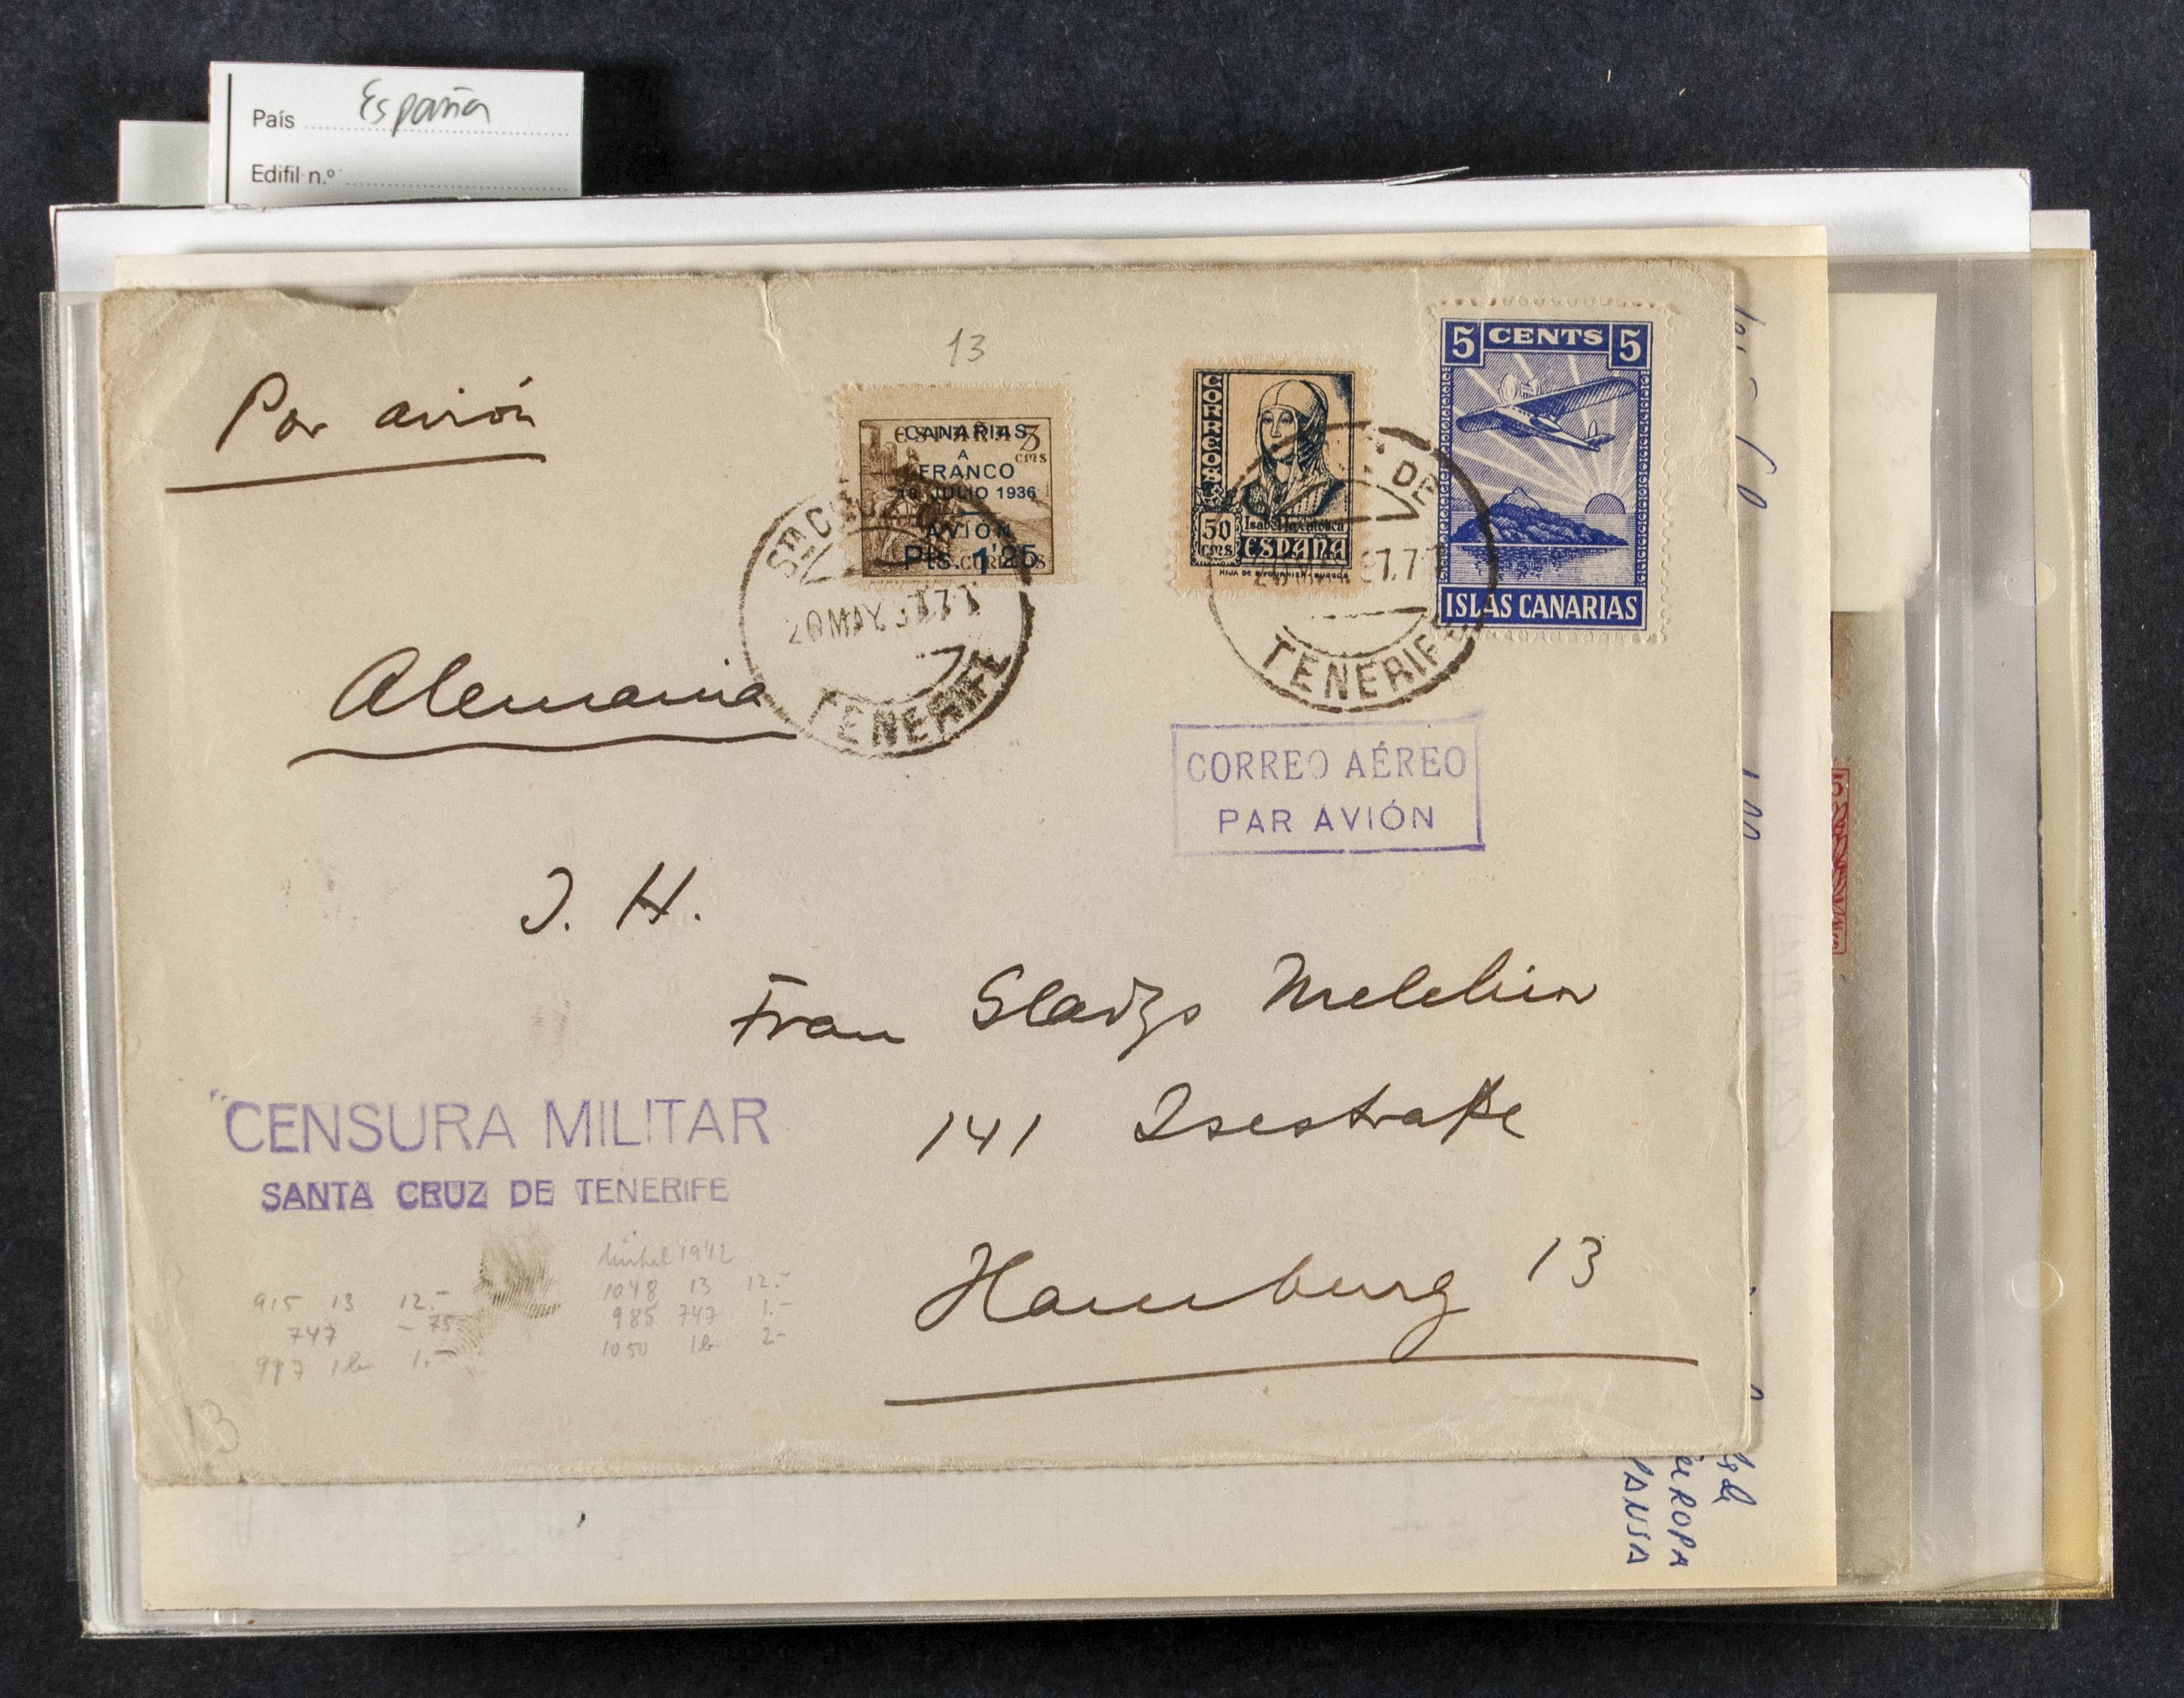 País España
Edifil n.º
13
Por avión
ESPAÑA 5 cms
CANARIAS
A
FRANCO
18 JULIO 1936
AVIÓN
Pts. 1'25
CORREOS
CORREOS
50 cms
Isabel la Católica
ESPAÑA
HIJA DE B. FOURNIER-BURGOS
5 CENTS 5
ISLAS CANARIAS
STA CRUZ
20 MAY
TENERIFE
DE
TENERIFE
Alemania
CORREO AÉREO
PAR AVIÓN
I. H.
Frau Gladys Melchior
141 Isestraße
Hamburg 13
"CENSURA MILITAR
SANTA CRUZ DE TENERIFE
915 13 12.-
747 -75
987 1b 1.-
Michel 1942
1048 13 12.-
985 747 1.-
1050 1b 2-
13
5